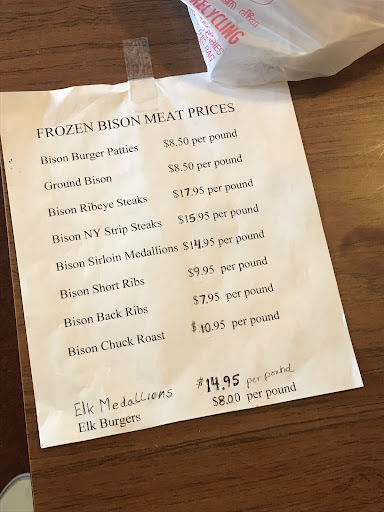 RECYCLING
FROZEN BISON MEAT PRICES
Bison Burger Patties $8.50 per pound
Ground Bison $8.50 per pound
Bison Ribeye Steaks $17.95 per pound
Bison NY Strip Steaks $15.95 per pound
Bison Sirloin Medallions $14.95 per pound
Bison Short Ribs $9.95 per pound
Bison Back Ribs $7.95 per pound
Bison Chuck Roast $10.95 per pound
Elk Medallions $14.95 per pound
Elk Burgers $8.00 per pound